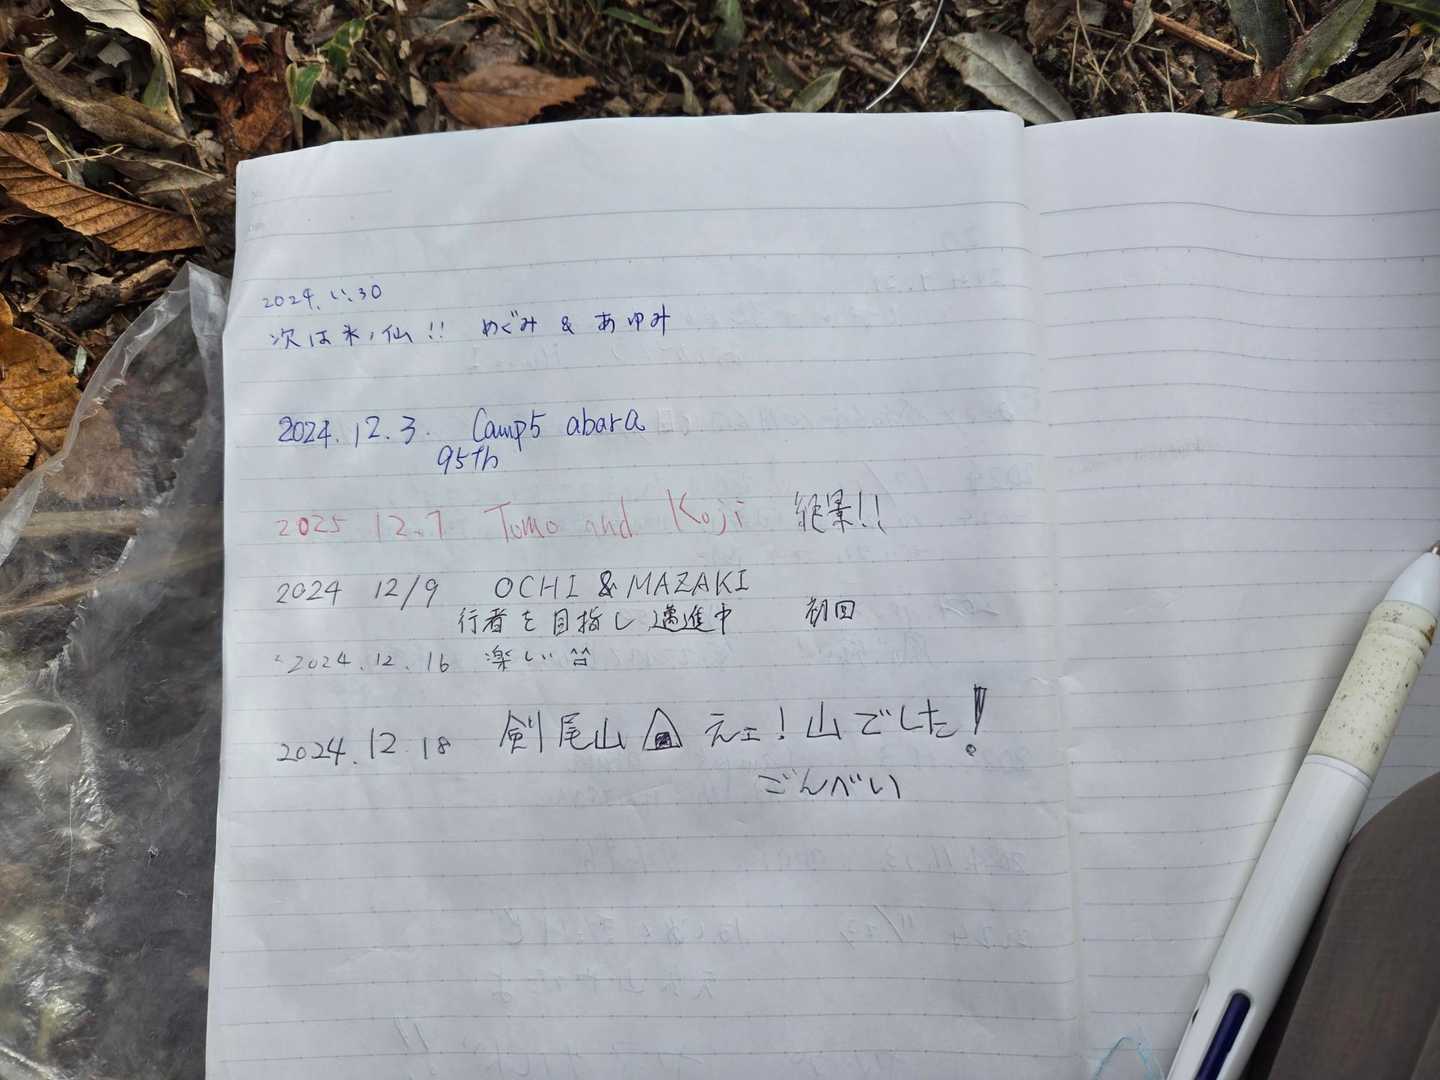 2024.11.30
次は氷ノ仙!! めぐみ & あゆみ
2024.12.3. Camp5 abara
95th
2025 12.7 Tomo and Koji 絶景!!
2024 12/9 OCHI & MAZAKI
行者を目指し邁進中 初回
2024.12.16 楽しい
2024.12.18 剣尾山 えェ!山でした!
ごんべい